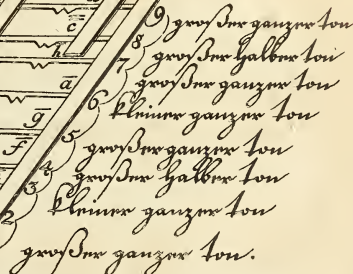 c̅ 9 großer ganzer ton
h 8 großer halber ton
a̅ 7 großer ganzer ton
6 kleiner ganzer ton
g̅ 5 großer ganzer ton
f̅ 4 großer halber ton
3 kleiner ganzer ton
2 großer ganzer ton.